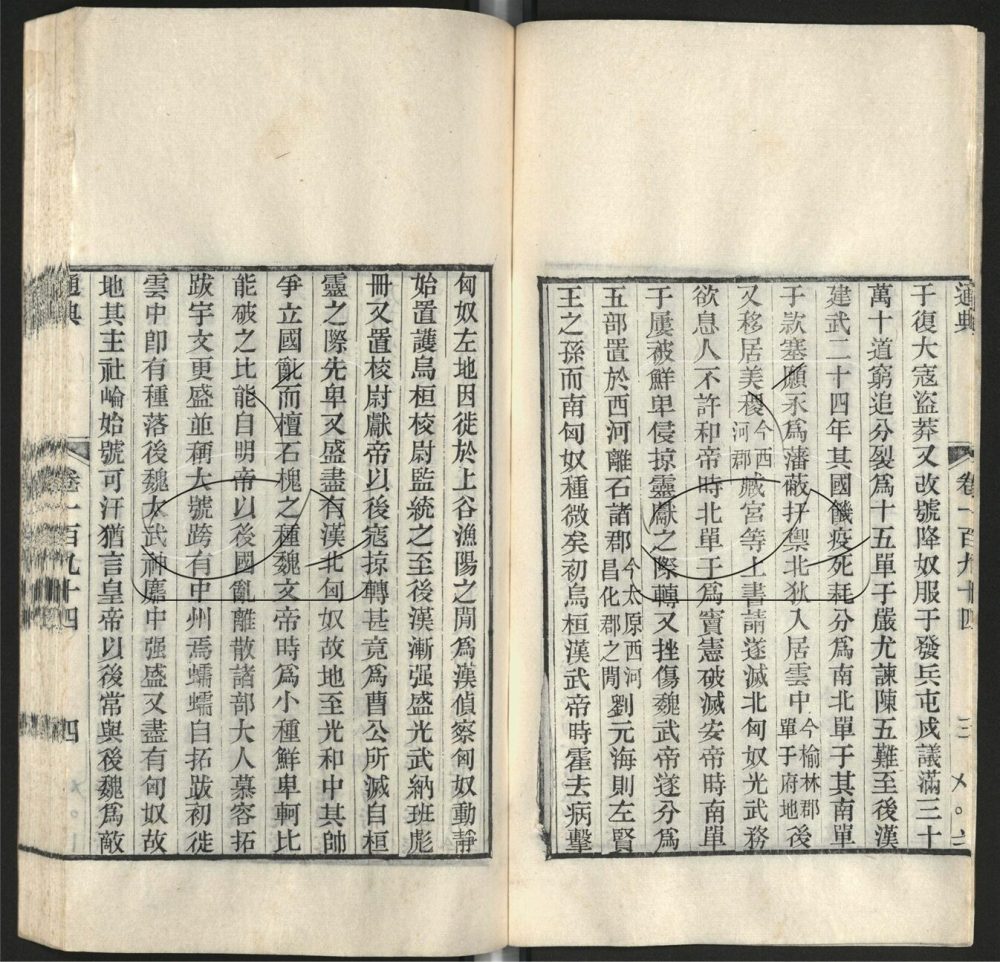 通典
卷一百九十四
三
于復大寇盜莽又改號降奴服于發兵屯戍議滿三十
萬十道窮追分裂爲十五單于嚴尤諫陳五難至後漢
建武二十四年其國饑疫死耗分爲南北單于其南單
于款塞願永爲藩蔽扞禦北狄入居雲中今榆林郡單于府地後
又移居美稷今西河郡臧宮等上書請遂滅北匈奴光武務
欲息人不許和帝時北單于爲竇憲破滅安帝時南單
于屢被鮮卑侵掠靈獻之際轉又挫傷魏武帝遂分爲
五部置於西河離石諸郡今太原西河昌化郡之閒劉元海則左賢
王之孫而南匈奴種微矣初烏桓漢武帝時霍去病擊
匈奴左地因徙於上谷漁陽之閒爲漢偵察匈奴動靜
始置護烏桓校尉監統之至後漢漸强盛光武納班彪
冊又置校尉獻帝以後寇掠轉甚竟爲曹公所滅自桓
靈之際先卑又盛盡有漢北匈奴故地至光和中其帥
爭立國亂而檀石槐之種魏文帝時爲小種鮮卑軻比
能破之比能自明帝以後國亂離散諸部大人慕容拓
跋宇文更盛並稱大號跨有中州焉蠕蠕自拓跋初徙
雲中卽有種落後魏太武神䴥中强盛又盡有匈奴故
地其主社崘始號可汗猶言皇帝以後常與後魏爲敵
通典
卷一百九十四
四